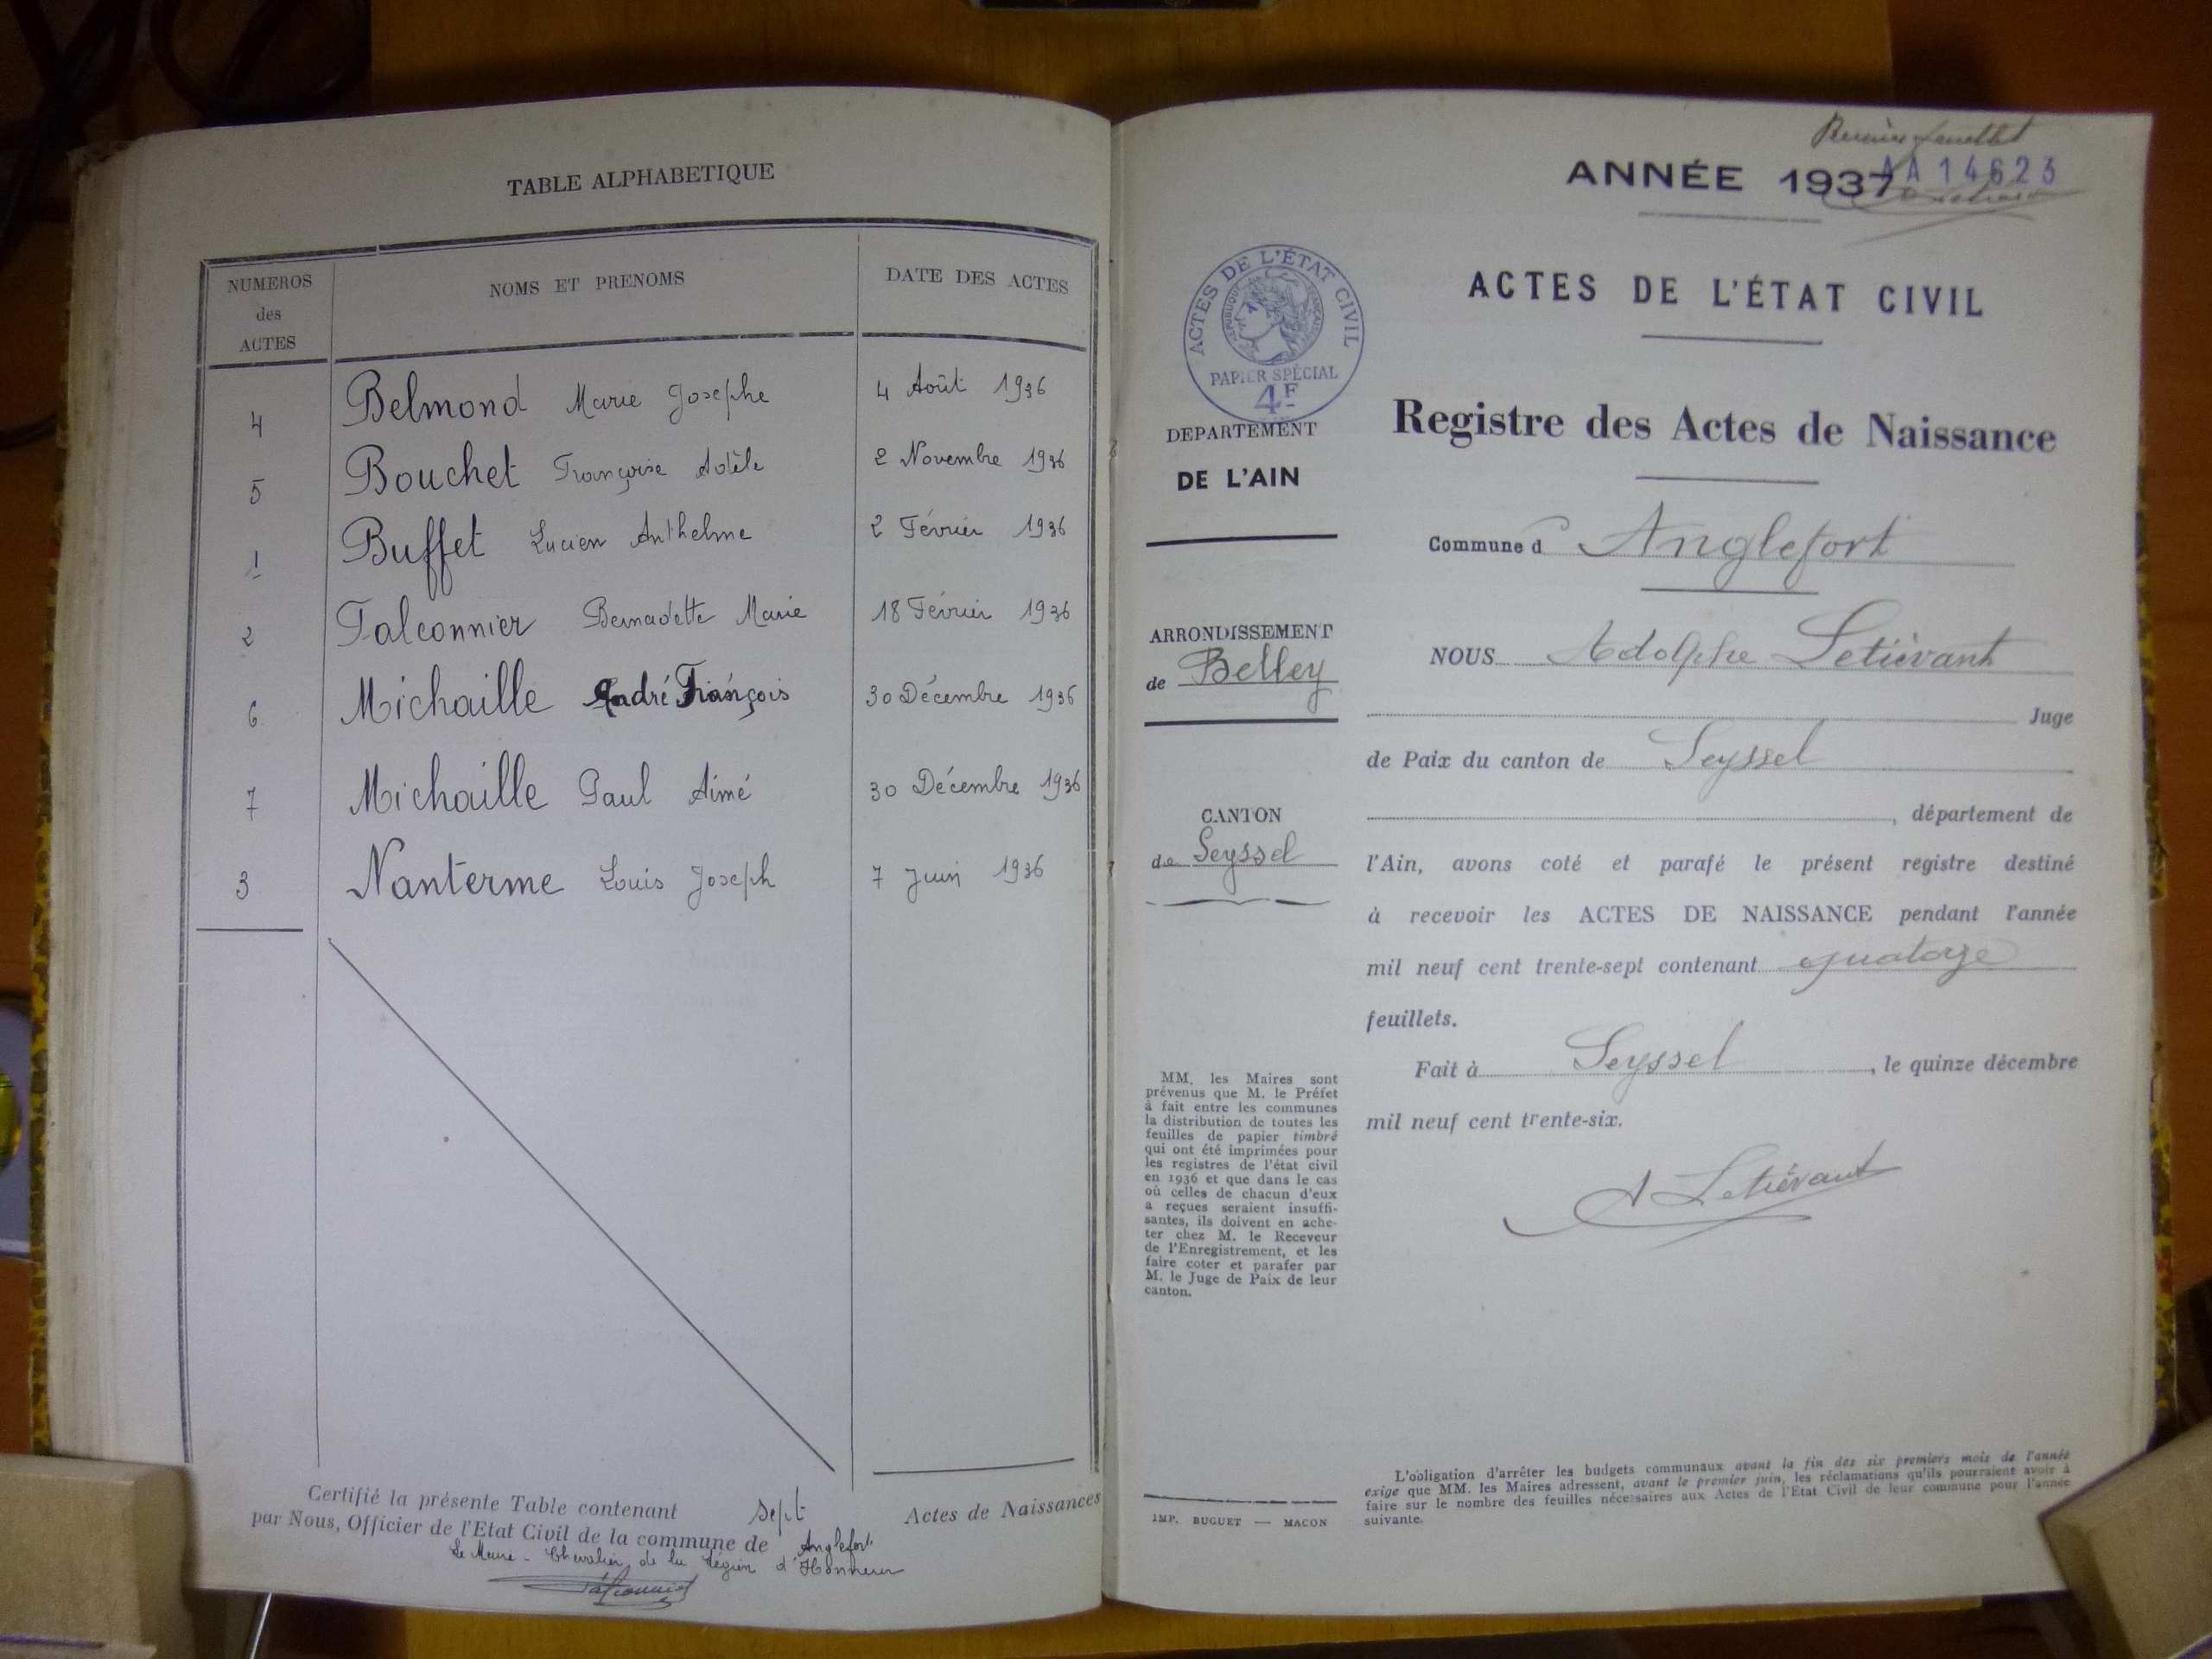 TABLE ALPHABETIQUE
NUMEROS des ACTES
NOMS ET PRENOMS
DATE DES ACTES
4 Belmond Marie Josephe 4 Août 1936
5 Bouchet Françoise Adèle 2 Novembre 1936
1 Buffet Lucien Anthelme 2 Février 1936
2 Falconnier Bernadette Marie 18 Février 1936
6 Michaille André François 30 Décembre 1936
7 Michaille Paul Aimé 30 Décembre 1936
3 Nanterme Louis Joseph 7 Juin 1936
Certifié la présente Table contenant sept Actes de Naissances
par Nous, Officier de l'Etat Civil de la commune de Anglefort
Le Maire - Chevalier de la Légion d'Honneur
Falconnier
ANNÉE 1937
AA 14623
ACTES DE L'ÉTAT CIVIL
RÉPUBLIQUE FRANÇAISE
PAPIER SPÉCIAL
4F
DEPARTEMENT
DE L'AIN
ARRONDISSEMENT
de Belley
CANTON
de Seyssel
MM. les Maires sont
prévenus que M. le Préfet
à fait entre les communes
la distribution de toutes les
feuilles de papier timbré
qui ont été imprimées pour
les registres de l'état civil
en 1936 et que dans le cas
où celles de chacun d'eux
a reçues seraient insuffi-
santes, ils doivent en ache-
ter chez M. le Receveur
de l'Enregistrement, et les
faire coter et parafer par
M. le Juge de Paix de leur
canton.
IMP. BUGUET — MACON
ACTES DE L'ÉTAT CIVIL
Registre des Actes de Naissance
Commune d'Anglefort
NOUS Adolphe Letiévant
Juge
de Paix du canton de Seyssel
, département de
l'Ain, avons coté et parafé le présent registre destiné
à recevoir les ACTES DE NAISSANCE pendant l'année
mil neuf cent trente-sept contenant quatorze
feuillets.
Fait à Seyssel, le quinze décembre
mil neuf cent trente-six.
A Letiévant
L'obligation d'arrêter les budgets communaux avant la fin des six premiers mois de l'année
exige que MM. les Maires adressent, avant le premier juin, les réclamations qu'ils pourraient avoir à
faire sur le nombre des feuilles nécessaires aux Actes de l'Etat Civil de leur commune pour l'année
suivante.